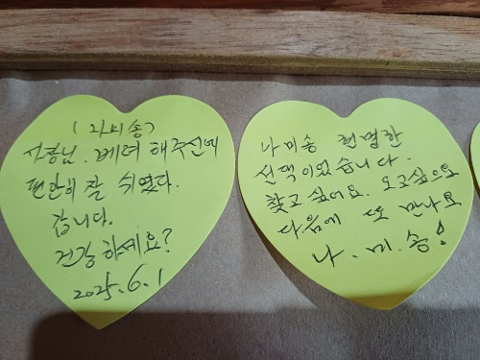 (나미송)
사장님. 베려 해주신에
편안히 잘 쉬였다.
갑니다.
건강하세요?
2025.6.1
나미송 현명한
선택이었습니다.
찾고싶어요. 오고싶으요
다음에 또 만나요
나.미.송!